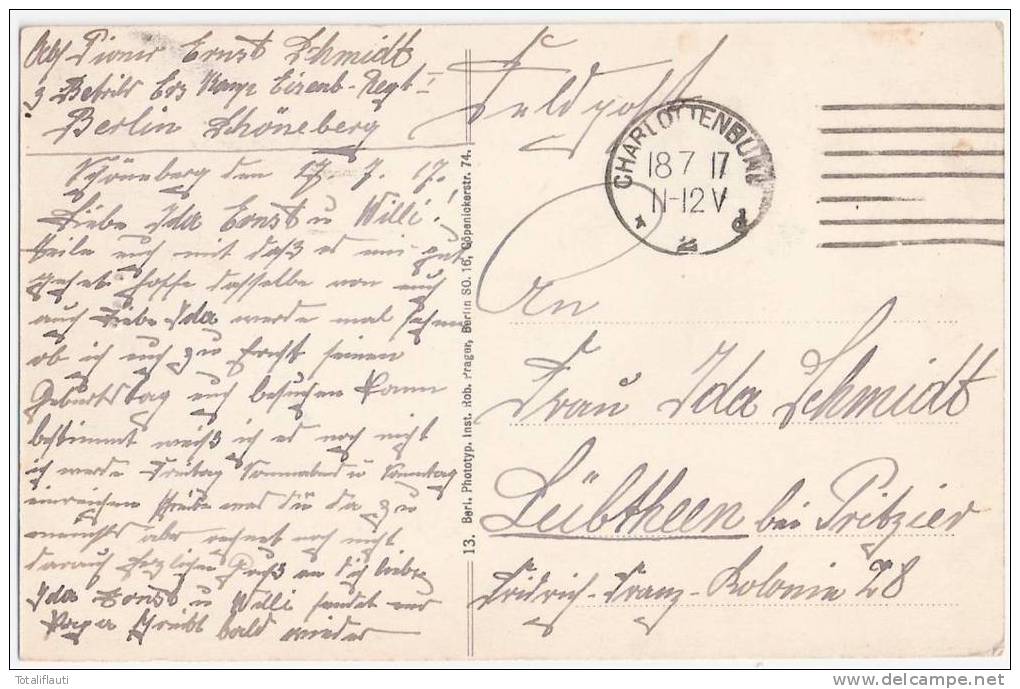 Abs Pionier Ernst Schmidt
3 Betrieb Ers Komp Eisenb-Regt I
Berlin Schöneberg
Schöneberg den 17. 7. 17.
Liebe Ida Ernst u Willi!
teile euch mit daß es mir gut
gehet hoffe dasselbe von euch
auch Liebe Ida werde mal sehen
ob ich euch zu Ernst seinen
Geburtstag euch besuchen kann
bestimmt weiß ich es noch nicht
ich werde Freitag Sonnabend u Sonntag
einreichen schreibe was du da zu
meinst aber rechnet noch nicht
darauf herzlichen Kuß an dich liebe
Ida Ernst u Willi sendet euer
Papa schreibt bald wieder
13. Berl. Phototyp. Inst. Rob. Prager, Berlin SO. 16, Cöpenickerstr. 74.
Feldpost
CHARLOTTENBURG
18 7 17
11-12 V
* 2 d
An
Frau Ida Schmidt
Lübtheen bei Pritzier
Fridrich-Franz-Kolonie 28
Totaliflauti
www.delcampe.net